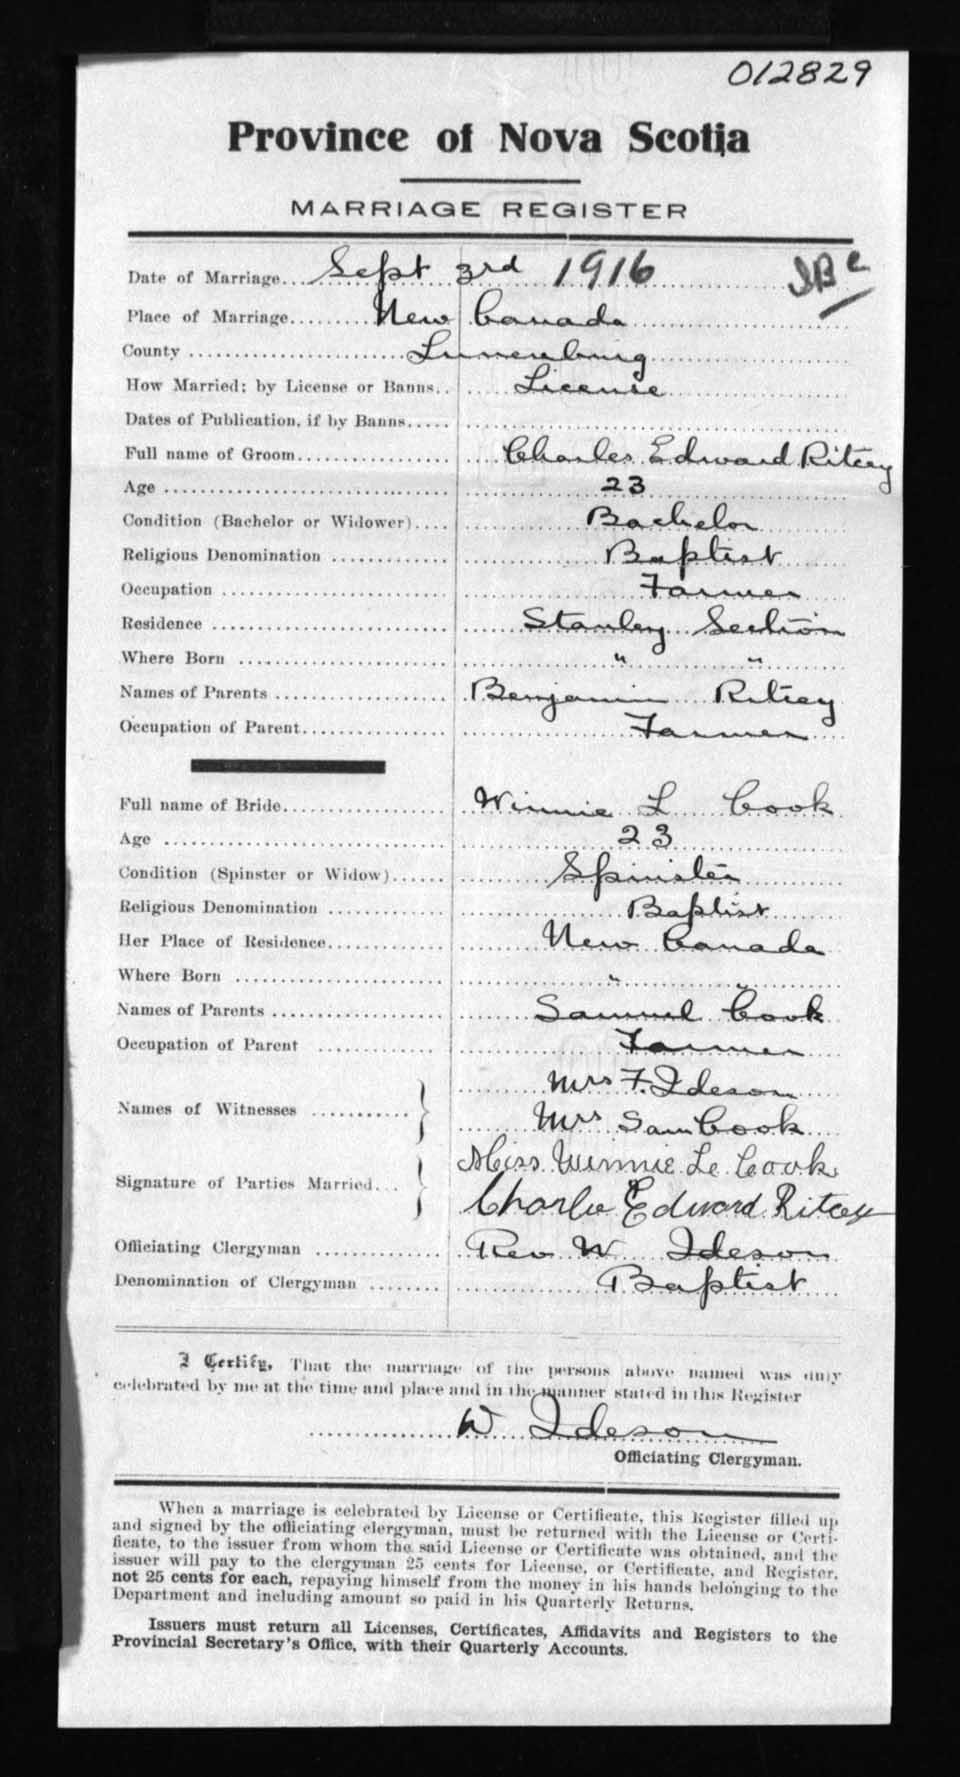 012829
Province of Nova Scotia
MARRIAGE REGISTER
Date of Marriage... Sept 3rd 1916
Place of Marriage... New Canada
County ... Lunenburg
How Married; by License or Banns... License
Dates of Publication, if by Banns.....
Full name of Groom... Charles Edward Ritcey
Age ... 23
Condition (Bachelor or Widower).... Bachelor
Religious Denomination ... Baptist
Occupation ... Farmer
Residence ... Stanley Section
Where Born ... " "
Names of Parents ... Benjamin Ritcey
Occupation of Parent... Farmer
Full name of Bride... Winnie L Cook
Age ... 23
Condition (Spinster or Widow)...... Spinster
Religious Denomination ... Baptist
Her Place of Residence... New Canada
Where Born ... " "
Names of Parents ... Samuel Cook
Occupation of Parent ... Farmer
Mrs F. Ideson
Names of Witnesses ...
Mrs Sam Cook
Miss Winnie Le Cook
Signature of Parties Married...
Charlie Edward Ritcey
Officiating Clergyman ... Rev W Ideson
Denomination of Clergyman ... Baptist
I Certify, That the marriage of the persons above named was duly
celebrated by me at the time and place and in the manner stated in this Register
W Ideson
Officiating Clergyman.
When a marriage is celebrated by License or Certificate, this Register filled up
and signed by the officiating clergyman, must be returned with the License or Certi-
ficate, to the issuer from whom the said License or Certificate was obtained, and the
issuer will pay to the clergyman 25 cents for License, or Certificate, and Register,
not 25 cents for each, repaying himself from the money in his hands belonging to the
Department and including amount so paid in his Quarterly Returns.
Issuers must return all Licenses, Certificates, Affidavits and Registers to the
Provincial Secretary's Office, with their Quarterly Accounts.